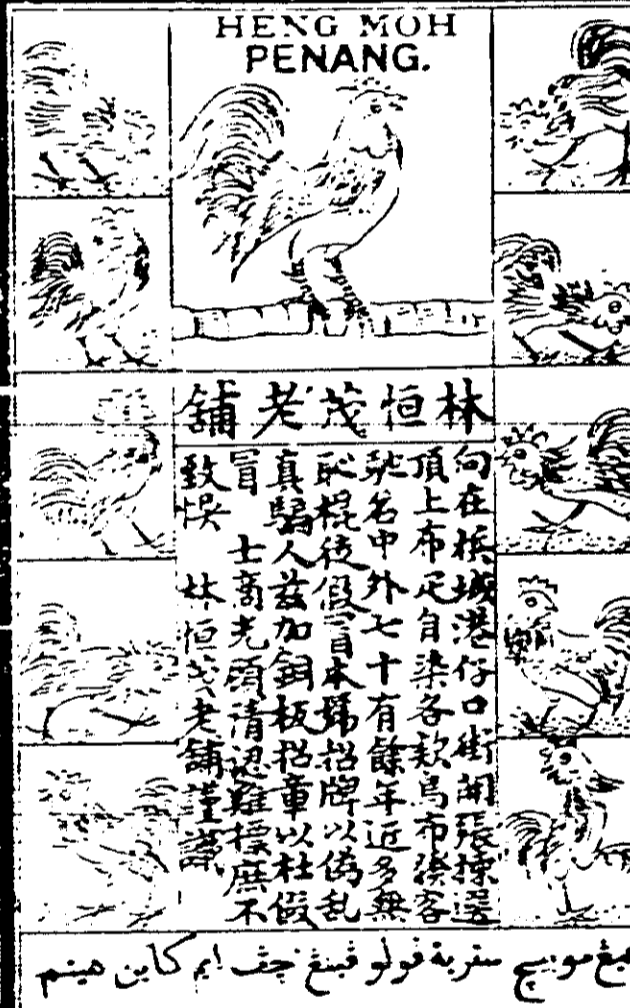 HENG MOH
PENANG.
林恒茂老舖
向在檳城港仔口街開張揀選
頂上布疋自染各款烏布發客
馳名中外七十有餘年近多無
恥棍徒假冒本號招牌以偽乱
真騙人茲加銅板招章以杜假
冒 士商光顧清認雞標庶不
致悞 林恒茂老舖謹啟
ڤولو ڤينڠ چڤ ايم كاين هيتم